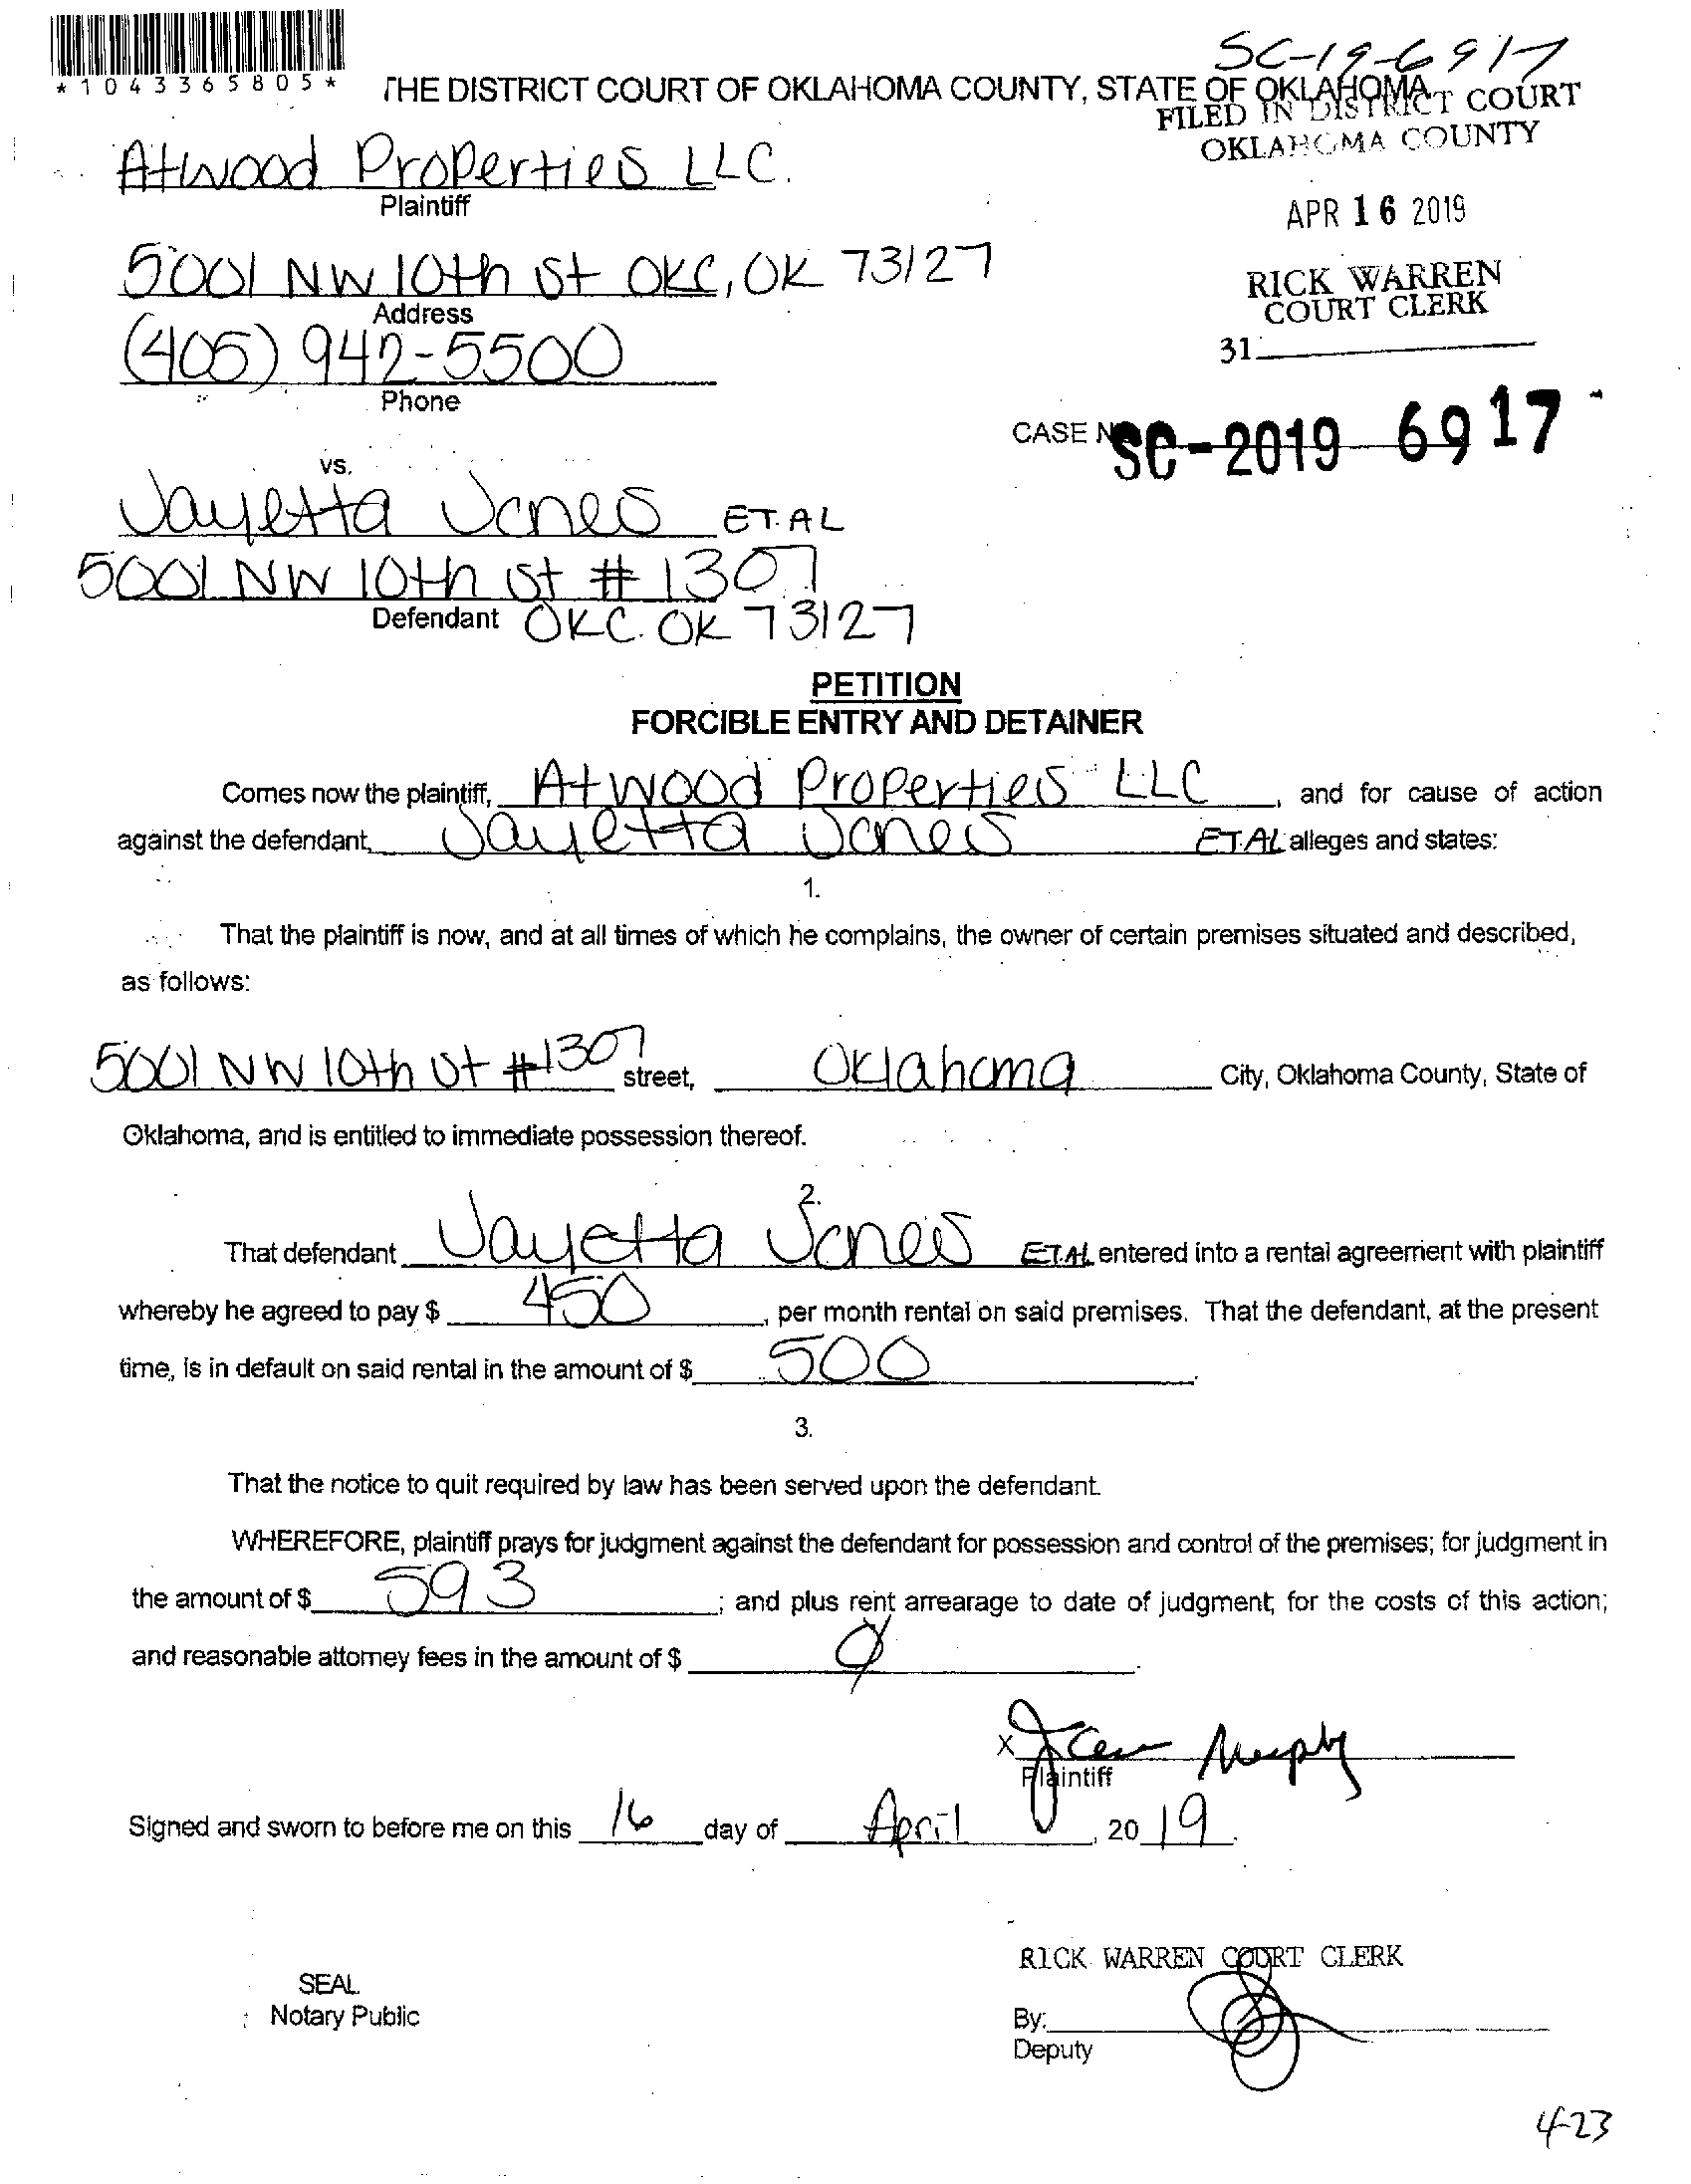 SC-19-6917
*1043365805*
THE DISTRICT COURT OF OKLAHOMA COUNTY, STATE OF OKLAHOMA
FILED IN DISTRICT COURT
OKLAHOMA COUNTY
Atwood Properties LLC.
Plaintiff
APR 16 2019
5001 NW 10th St OKC, OK 73127
Address
RICK WARREN
COURT CLERK
(405) 942-5500
31
Phone
CASE N SC-2019 6917
vs.
Jayetta Jones ET.AL
5001 NW 10th St # 1307
Defendant OKC. OK 73127
PETITION
FORCIBLE ENTRY AND DETAINER
Comes now the plaintiff, Atwood Properties LLC, and for cause of action
against the defendant, Jayetta Jones ET.AL alleges and states:
1.
That the plaintiff is now, and at all times of which he complains, the owner of certain premises situated and described,
as follows:
5001 NW 10th St #1307 street, Oklahoma City, Oklahoma County, State of
Oklahoma, and is entitled to immediate possession thereof.
2.
That defendant Jayetta Jones ET.AL entered into a rental agreement with plaintiff
whereby he agreed to pay $ 450, per month rental on said premises. That the defendant, at the present
time, is in default on said rental in the amount of $ 500.
3.
That the notice to quit required by law has been served upon the defendant.
WHEREFORE, plaintiff prays for judgment against the defendant for possession and control of the premises; for judgment in
the amount of $ 593; and plus rent arrearage to date of judgment; for the costs of this action;
and reasonable attorney fees in the amount of $ Ø.
X Murphy
Plaintiff
Signed and sworn to before me on this 16 day of April, 2019.
RICK WARREN COURT CLERK
SEAL
Notary Public
By:
Deputy
4-23